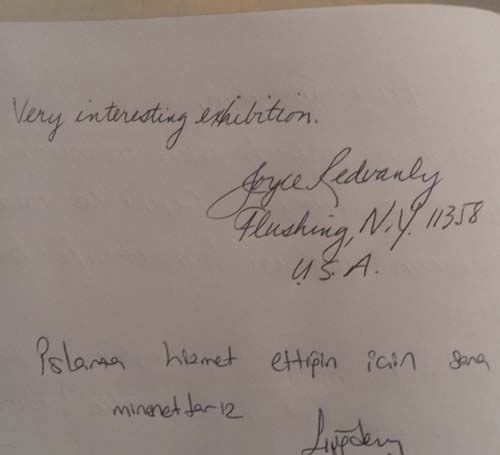 Very interesting exhibition.
Joyce Redvanly
Flushing, N.Y. 11358
U.S.A.
İslama hizmet ettiğin için sana
minnettarız